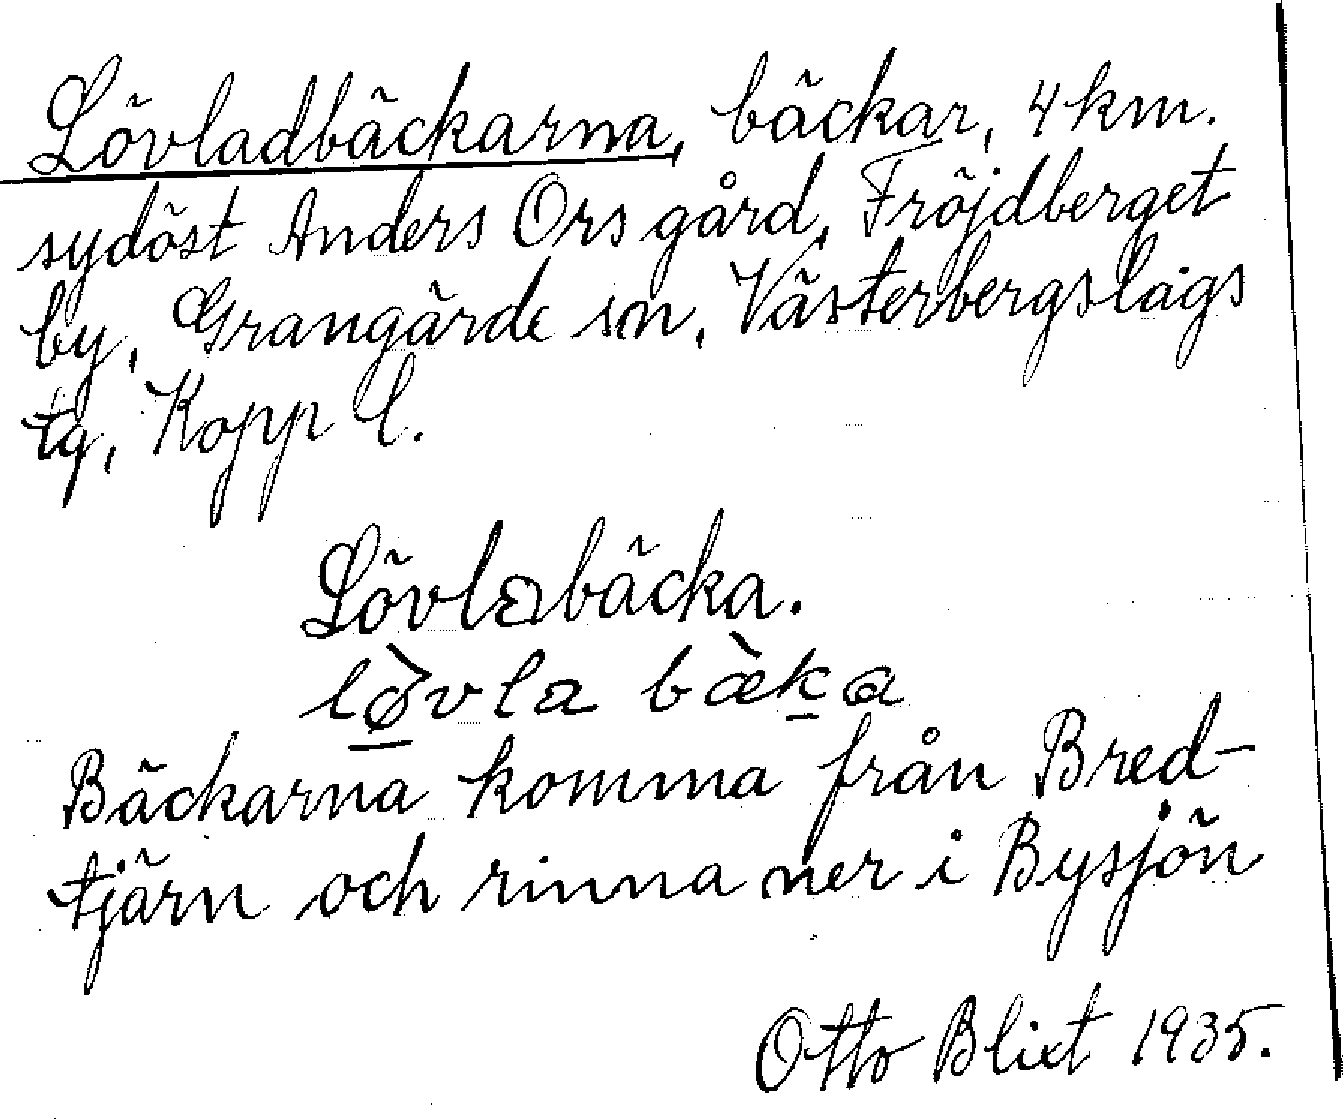 Lövladbäckarna, bäckar, 4 km.
sydöst Anders Ors gård, Fröjdberget
by, Grangärde sn, Västerbergslags
tg, Kopp l.
Lövlabäcka.
lø̀vla bæ̀ka
Bäckarna komma från Bred-
tjärn och rinna ner i Bysjön
Otto Blixt 1935.